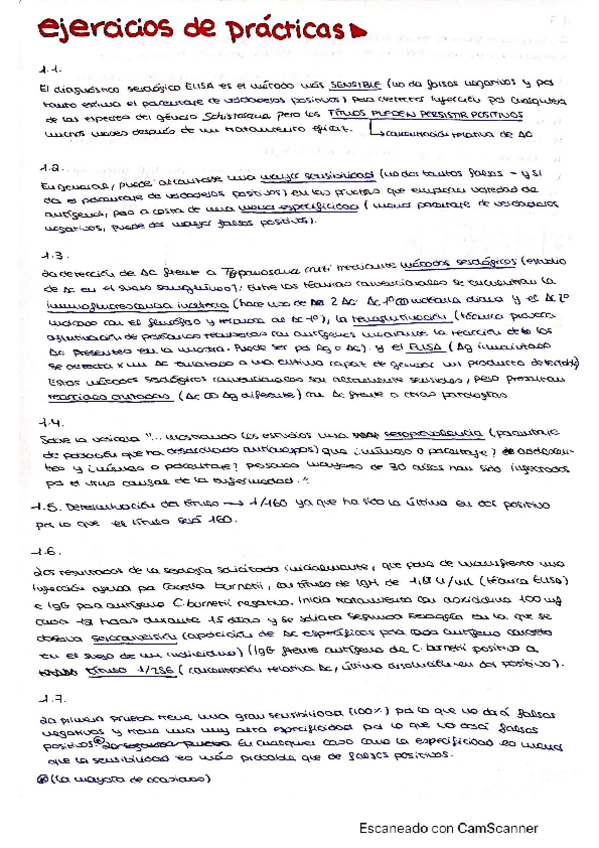 ejercicios de prácticas
1.1.
El diagnóstico serológico ELISA es el método más SENSIBLE (no da falsos negativos y por
tanto estima el porcentaje de verdaderos positivos) para detectar infección por cualquiera
de las especies del género Schistosoma pero los TÍTULOS PUEDEN PERSISTIR POSITIVOS
muchos meses después de un tratamiento eficaz. → concentración relativa de Ac
1.2.
En general, puede alcanzarse una mayor sensibilidad (no da tantos falsos - y si
da el porcentaje de verdaderos positivos) en las pruebas que emplean variedad de
antígenos, pero a costa de una menor especificidad (menor porcentaje de verdaderos
negativos, puede dar mayor falsos positivos).
1.3.
La detección de Ac frente a Trypanosoma cruzi mediante métodos serológicos (estudio
de Ac en el suero sanguíneo). Entre las técnicas convencionales se encuentran la
inmunofluorescencia indirecta (hace uso de 2 Ac. Ac 1º diana y el Ac 2º
marcado con el fluoróforo y reconoce al Ac 1º), la hemaglutinación (técnica provoca
aglutinación de partículas recubiertas con antígenos mediante la reacción de los
Ac presentes en la muestra. Puede ser por Ag o Ac). y el ELISA (Ag inmovilizado
se detecta x un Ac enlazado a una enzima capaz de generar un producto detectable)
Estos métodos serológicos convencionales son altamente sensibles, pero presentan
reacciones cruzadas (Ac Ag diferente) con Ac frente a otras patologías
1.4.
Sobre la varicela "... mostrando los estudios una seroprevalencia (porcentaje
de población que ha desarrollado anticuerpos) que ¿número o porcentaje? de adolescen-
tes y ¿número o porcentaje? personas mayores de 30 años han sido infectados
por el virus causal de la enfermedad."
1.5. Determinación del título → 1/160 ya que ha sido la última en dar positivo
por lo que el título será 160.
1.6.
Los resultados de la serología solicitada inicialmente, que pone de manifiesto una
infección aguda por Coxiella burnetii, con título de IgM de U/ml (técnica Elisa)
e IgG para antígeno C. burnetii negativo. Inicia tratamiento con doxiciclina 100 mg
cada 12 horas durante 15 días y se solicita segunda serología en la que se
observa seroconversión (aparición de Ac específicos para cada antígeno concreto
en el suero de un individuo) (IgG frente antígeno de C. burnetii positivo a
título 1/256 (concentración relativa Ac, última disolución en dar positivo).
1.7.
La primera prueba tiene una gran sensibilidad (100%) por lo que no dará falsos
negativos y tiene una muy alta especificidad por lo que no dará falsos
positivos. La segunda prueba En cualquier caso como la especificidad es menor
que la sensibilidad es más probable que de falsos positivos.
(la mayoría de ocasiones)
Escaneado con CamScanner